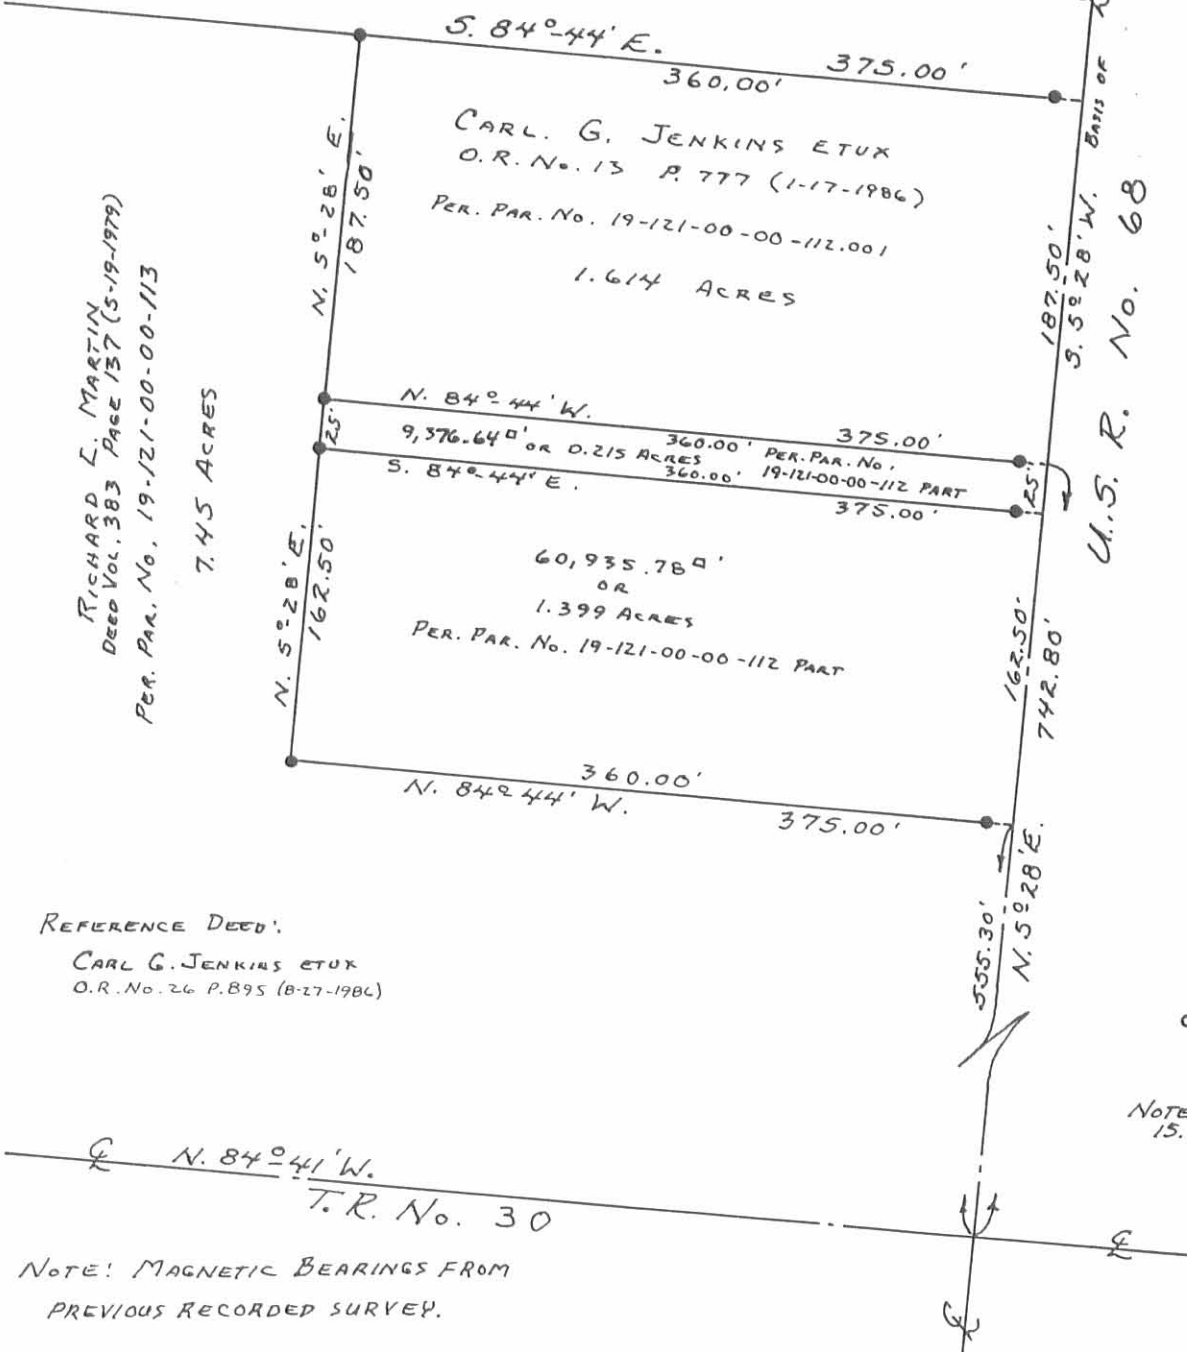 S. 84°-44' E.
360.00'
375.00'
CARL. G. JENKINS ETUX
O.R. No. 13 P. 777 (1-17-1986)
PER. PAR. No. 19-121-00-00-112.001
1.614 ACRES
N. 5°-28' E.
187.50'
BASIS OF
187.50'
S. 5°28' W.
U.S. R. No. 68
RICHARD L. MARTIN
DEED VOL. 383 PAGE 137 (5-19-1979)
PER. PAR. No. 19-121-00-00-113
7.45 ACRES
N. 84°-44' W.
360.00'
375.00'
25'
9,376.64□' OR 0.215 ACRES
PER. PAR. No.
19-121-00-00-112 PART
S. 84°-44' E.
360.00'
375.00'
25'
N. 5°-28' E.
162.50'
60,935.78□'
OR
1.399 ACRES
PER. PAR. No. 19-121-00-00-112 PART
162.50'
742.80'
360.00'
N. 84°44' W.
375.00'
555.30'
N. 5°28' E.
REFERENCE DEED:
CARL G. JENKINS ETUX
O.R. No. 26 P. 895 (8-27-1986)
NOTE
15.
℄ N. 84°-41' W.
T.R. No. 30
℄
℄
NOTE! MAGNETIC BEARINGS FROM
PREVIOUS RECORDED SURVEY.